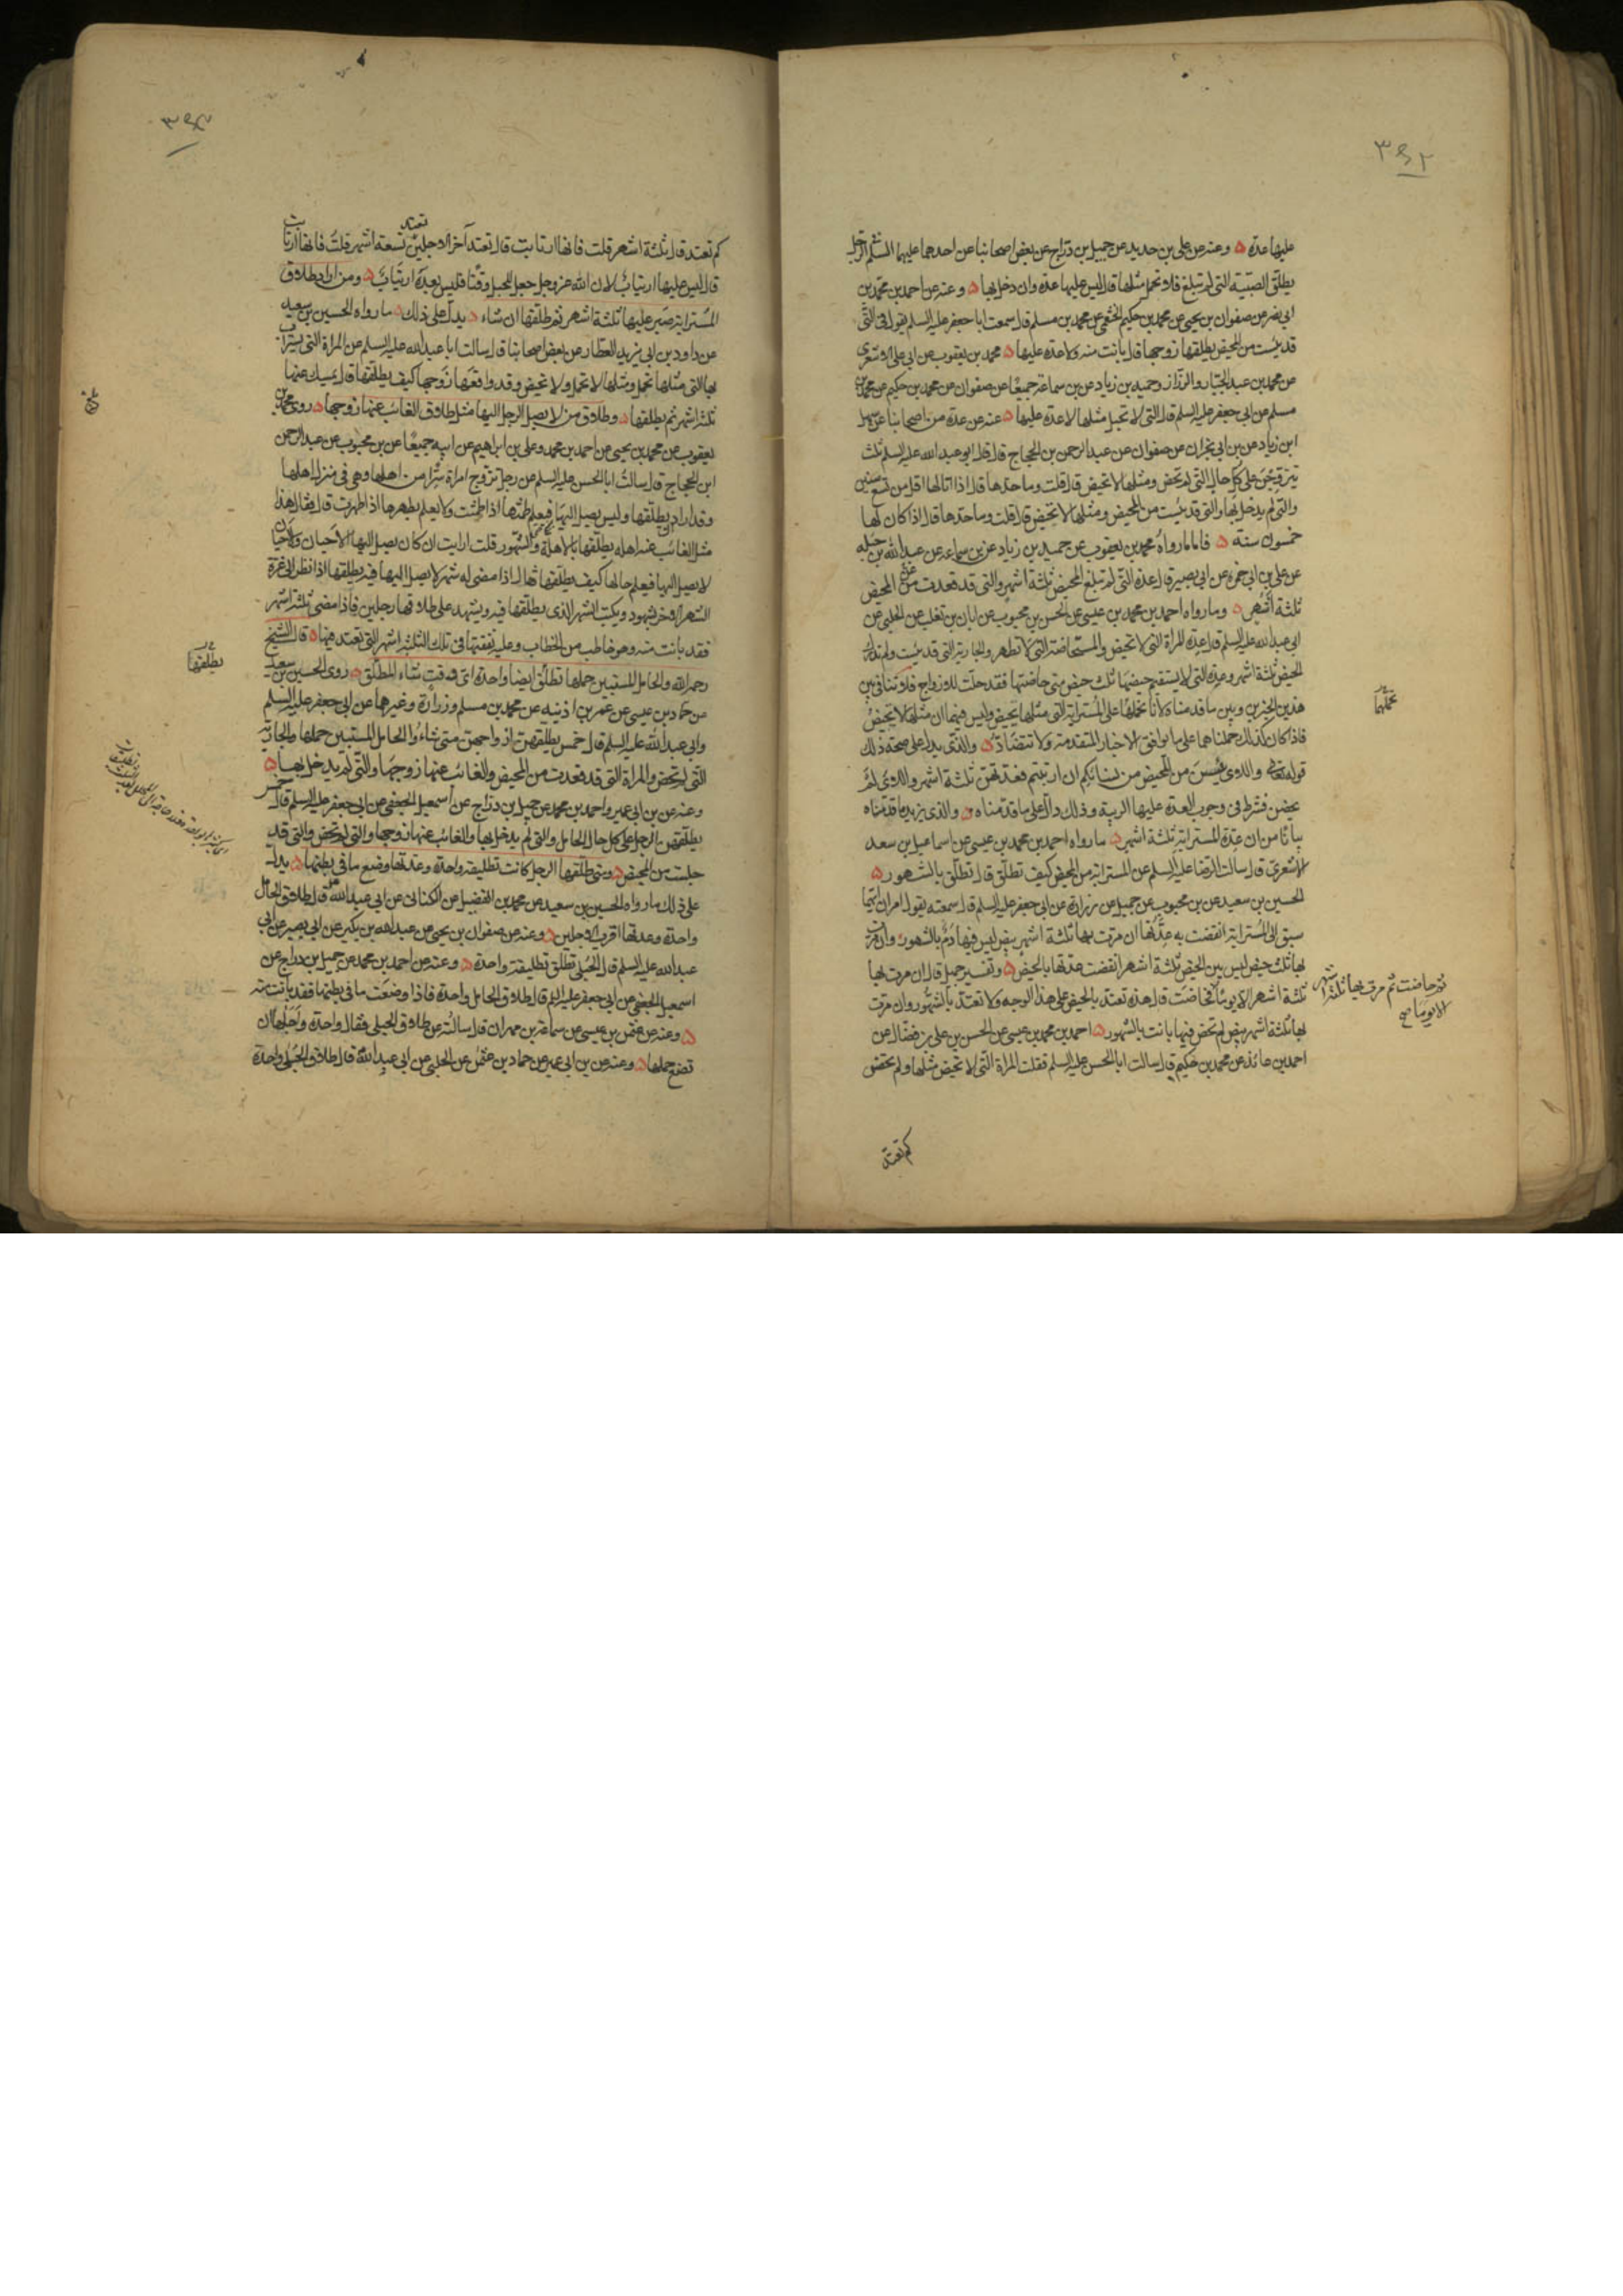 ٣٩٢
عليها عدة ۵ وعنه عن علي بن حديد عن جميل بن دراج عن بعض اصحابنا عن احدهما عليهما السلم الرجل
يطلق الصبية التي لم تبلغ فلا تحمل مثلها قال ليس عليها عدة وان دخل بها ۵ وعنه عن احمد بن محمد بن
ابي نصر عن صفوان بن يحيى عن محمد بن حكيم الخثعمي عن محمد بن مسلم قال سمعت ابا جعفر عليه السلم يقول في التي
قد يئست من المحيض يطلقها زوجها قال بانت منه ولا عدة عليها ۵ محمد بن يعقوب عن ابي علي الاشعري
عن محمد بن عبد الجبار والرزاز وحميد بن زياد عن بن سماعة جميعا عن صفوان عن محمد بن حكيم عن محمد بن
مسلم عن ابي جعفر عليه السلم قال التي لا تحبل مثلها لا عدة عليها ۵ عنه عن عدة من اصحابنا عن سهل
ابن زياد عن بن ابي نجران عن صفوان عن عبد الرحمن بن الحجاج قال قال ابو عبد الله عليه السلم ثلث
يتزوجن على كل حال التي لم تحض ومثلها لا تحيض قال قلت وما حدها قال اذا اتا لها اقل من تسع سنين
والتي لم يدخل بها والتي قد يئست من المحيض ومثلها لا تحيض قال قلت وما حدها قال اذا كان لها
خمسون سنة ۵ فاما ما رواه محمد بن يعقوب عن حميد بن زياد عن بن سماعه عن عبد الله بن جبله
عن علي بن ابي حمزه عن ابي بصير قال عدة التي لم تبلغ المحيض ثلثة اشهر والتي قد قعدت عن المحيض
ثلثة اشهر ۵ وما رواه احمد بن محمد بن عيسى عن الحسن بن محبوب عن ابان بن تغلب عن الحلبي عن
ابي عبد الله عليه السلم قال عدة المراة التي لا تحيض والمستحاضة التي لا تطهر والجارية التي قد يئست ولم تدرك
الحيض ثلثة اشهر وعدة التي لا يستقيم حيضها ثلث حيض متى حاضتها فقد حلت للازواج فلا تنافي بين
هذين الخبرين وبين ما قدمناه لانا نحملها على المسترابة التي مثلها تحيض وليس فيهما ان مثلها لا تحيض
فاذا كان كذلك حملناهما على ما يوافق الاخبار المتقدمة ولا تتضاد ۵ والذي يدل على صحة ذلك
قوله تعالى واللاوى يئسن من المحيض من نسائكم ان ارتبتم فعدتهن ثلثة اشهر واللاوى لم
يحضن فشرط في وجوب العدة عليها الريبة وذلك دال على ما قدمناه ۵ والذي يزيد ما قدمناه
بيانا من ان عدة المسترابة ثلثة اشهر ۵ ما رواه احمد بن محمد بن عيسى عن اسماعيل بن سعد
الاشعري قال سالت الرضا عليه السلم عن المسترابة من المحيض كيف تطلق قال تطلق بالشهور ۵
الحسين بن سعيد عن بن محبوب عن جميل عن زرارة عن ابي جعفر عليه السلم قال سمعته يقول امران ايهما
سبق الى المسترابة انقضت به عدتها ان مرت بها ثلثة اشهر بيض ليس فيها دم بالشهور وان مرت
بها ثلث حيض ليس بين الحيض ثلثة اشهر انقضت عدتها بالحيض ۵ وتفسير جميل قال ان مرت بها
ثلثة اشهر الا يوما فحاضت قال هذه تعتد بالحيض على هذا الوجه ولا تعتد بالشهور وان مرت
بها ثلثة اشهر بيض لم تحض فيها بانت بالشهور ۵ احمد بن محمد بن عيسى عن الحسن بن علي بن فضال عن
احمد بن عائذ عن محمد بن حكيم قال سالت ابا الحسن عليه السلم فقلت المراة التي لا تحيض مثلها ولم تحض
نحملها
ثم حاضت ثم مرت بها ثلثة اشهر
الا يوما صح
كم تعتد
٣٩٣
كم تعتد قال ثلثة اشهر قلت فانها ارتابت قال تعتد آخر الاجلين تعتد تسعة اشهر قلت فانها ارتابت
قال ليس عليها ارتياب لان الله عز وجل جعل للحبل وقتا فليس بعده ارتياب ۵ ومن اراد طلاق
المسترابة صبر عليها ثلثة اشهر ثم طلقها ان شاء ۵ يدل على ذلك ۵ ما رواه الحسين بن سعيد
عن داود بن ابي يزيد العطار عن بعض اصحابنا قال سالت ابا عبد الله عليه السلم عن المراة التي يستراب
بها التي مثلها تحمل ومثلها لا تحمل ولا تحيض وقد واقعها زوجها كيف يطلقها قال يمسك عنها
ثلثة اشهر ثم يطلقها ۵ وطلاق من لا يصل الرجل اليها مثل طلاق الغائب عنها زوجها ۵ روى محمد بن
يعقوب عن محمد بن يحيى عن احمد بن محمد وعلي بن ابراهيم عن ابيه جميعا عن بن محبوب عن عبد الرحمن
ابن الحجاج قال سالت ابا الحسن عليه السلم عن رجل تزوج امراة سرا من اهلها وهي في منزل اهلها
وقد اراد ان يطلقها وليس يصل اليها فيعلم طمثها اذا طمثت ولا يعلم بطهرها اذا طهرت قال فقال هذا
مثل الغائب عن اهله يطلقها بالاهلة والشهور قلت ارايت ان كان يصل اليها الاحيان والاحيان
لا يصل اليها فيعلم حالها كيف يطلقها قال اذا مضى له شهر لا يصل اليها فيه يطلقها اذا نظر الى غرة
الشهر الاخر بشهود ويكتب الشهر الذي يطلقها فيه ويشهد على طلاقها رجلين فاذا مضى ثلثة اشهر
فقد بانت منه وهو خاطب من الخطاب وعليه نفقتها في تلك الثلثه اشهر التي تعتد فيها ۵ قال الشيخ
رحمه الله والحامل المستبين حملها تطلق ايضا واحدة اي وقت شاء المطلق ۵ روى الحسين بن سعيد
عن حماد بن عيسى عن عمر بن اذينه عن محمد بن مسلم وزرارة وغيرهما عن ابي جعفر عليه السلم
وابي عبد الله عليه السلم قال خمس يطلقهن ازواجهن متى شاءوا الحامل المستبين حملها والجارية
التي لم تحض والمراة التي قد قعدت من المحيض والغائب عنها زوجها والتي لم يدخل بها ۵
وعنه عن بن ابي عمير واحمد بن محمد عن جميل بن دراج عن اسمعيل الجعفي عن ابي جعفر عليه السلم قال خمس
يطلقهن الرجل على كل حال الحامل والتي لم يدخل بها والغائب عنها زوجها والتي لم تحض والتي قد
جلست من المحيض ۵ ومتى طلقها الرجل كانت تطليقة واحدة وعدتها وضع ما في بطنها ۵ يدل
على ذلك ما رواه الحسين بن سعيد عن محمد بن الفضيل عن الكناني عن ابي عبد الله قال طلاق الحامل
واحدة وعدتها اقرب الاجلين ۵ وعنه عن صفوان بن يحيى عن عبد الله بن بكير عن ابي بصير عن ابي
عبد الله عليه السلم قال الحبلى تطلق تطليقة واحدة ۵ وعنه عن احمد بن محمد عن جميل بن دراج عن
اسمعيل الجعفي عن ابي جعفر عليه السلم قال طلاق الحامل واحدة فاذا وضعت ما في بطنها فقد بانت منه
۵ وعنه عن عثمن بن عيسى عن سماعة بن مهران قال سالته عن طلاق الحبلى فقال واحدة واجلها ان
تضع حملها ۵ وعنه عن بن ابي عمير عن حماد بن عثمن عن الحلبي عن ابي عبد الله قال طلاق الحبلى واحدة
بلغ
يطلقها